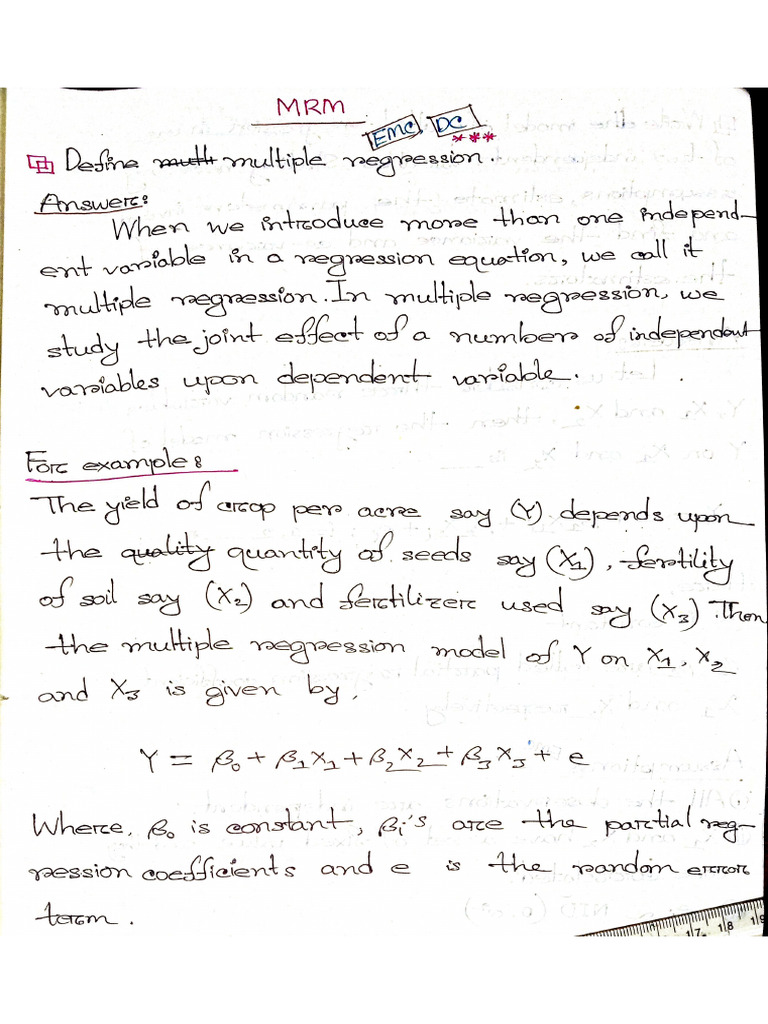 MRM
EMC, DC ***
Define mutt multiple regression.
Answer:
When we introduce more than one independ-
ent variable in a regression equation, we call it
multiple regression. In multiple regression, we
study the joint effect of a number of independent
variables upon dependent variable.
For example:
The yield of crop per acre say (Y) depends upon
the quality quantity of seeds say (X₁), fertility
of soil say (X₂) and fertilizer used say (X₃). Then
the multiple regression model of Y on X₁, X₂
and X₃ is given by,
Y = β₀ + β₁X₁ + β₂X₂ + β₃X₃ + e
Where, β₀ is constant, βᵢ's are the partial reg-
ression coefficients and e is the random error
term.
17 18 19